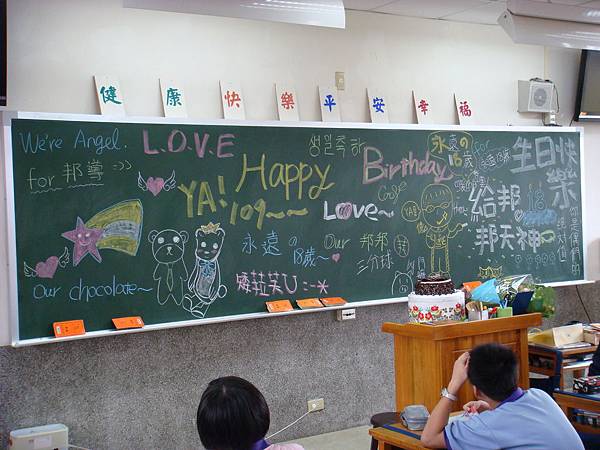 健康快樂平安幸福
We're Angel.
for 邦導 =>>
L.O.V.E
YA! 109~~
Happy
Birthday
생일축하
Love~
永遠の18歲~
Our chocolate~
Our 邦邦
三分球
永遠の18歲
YAB!
for
生日快樂
給邦
邦天神